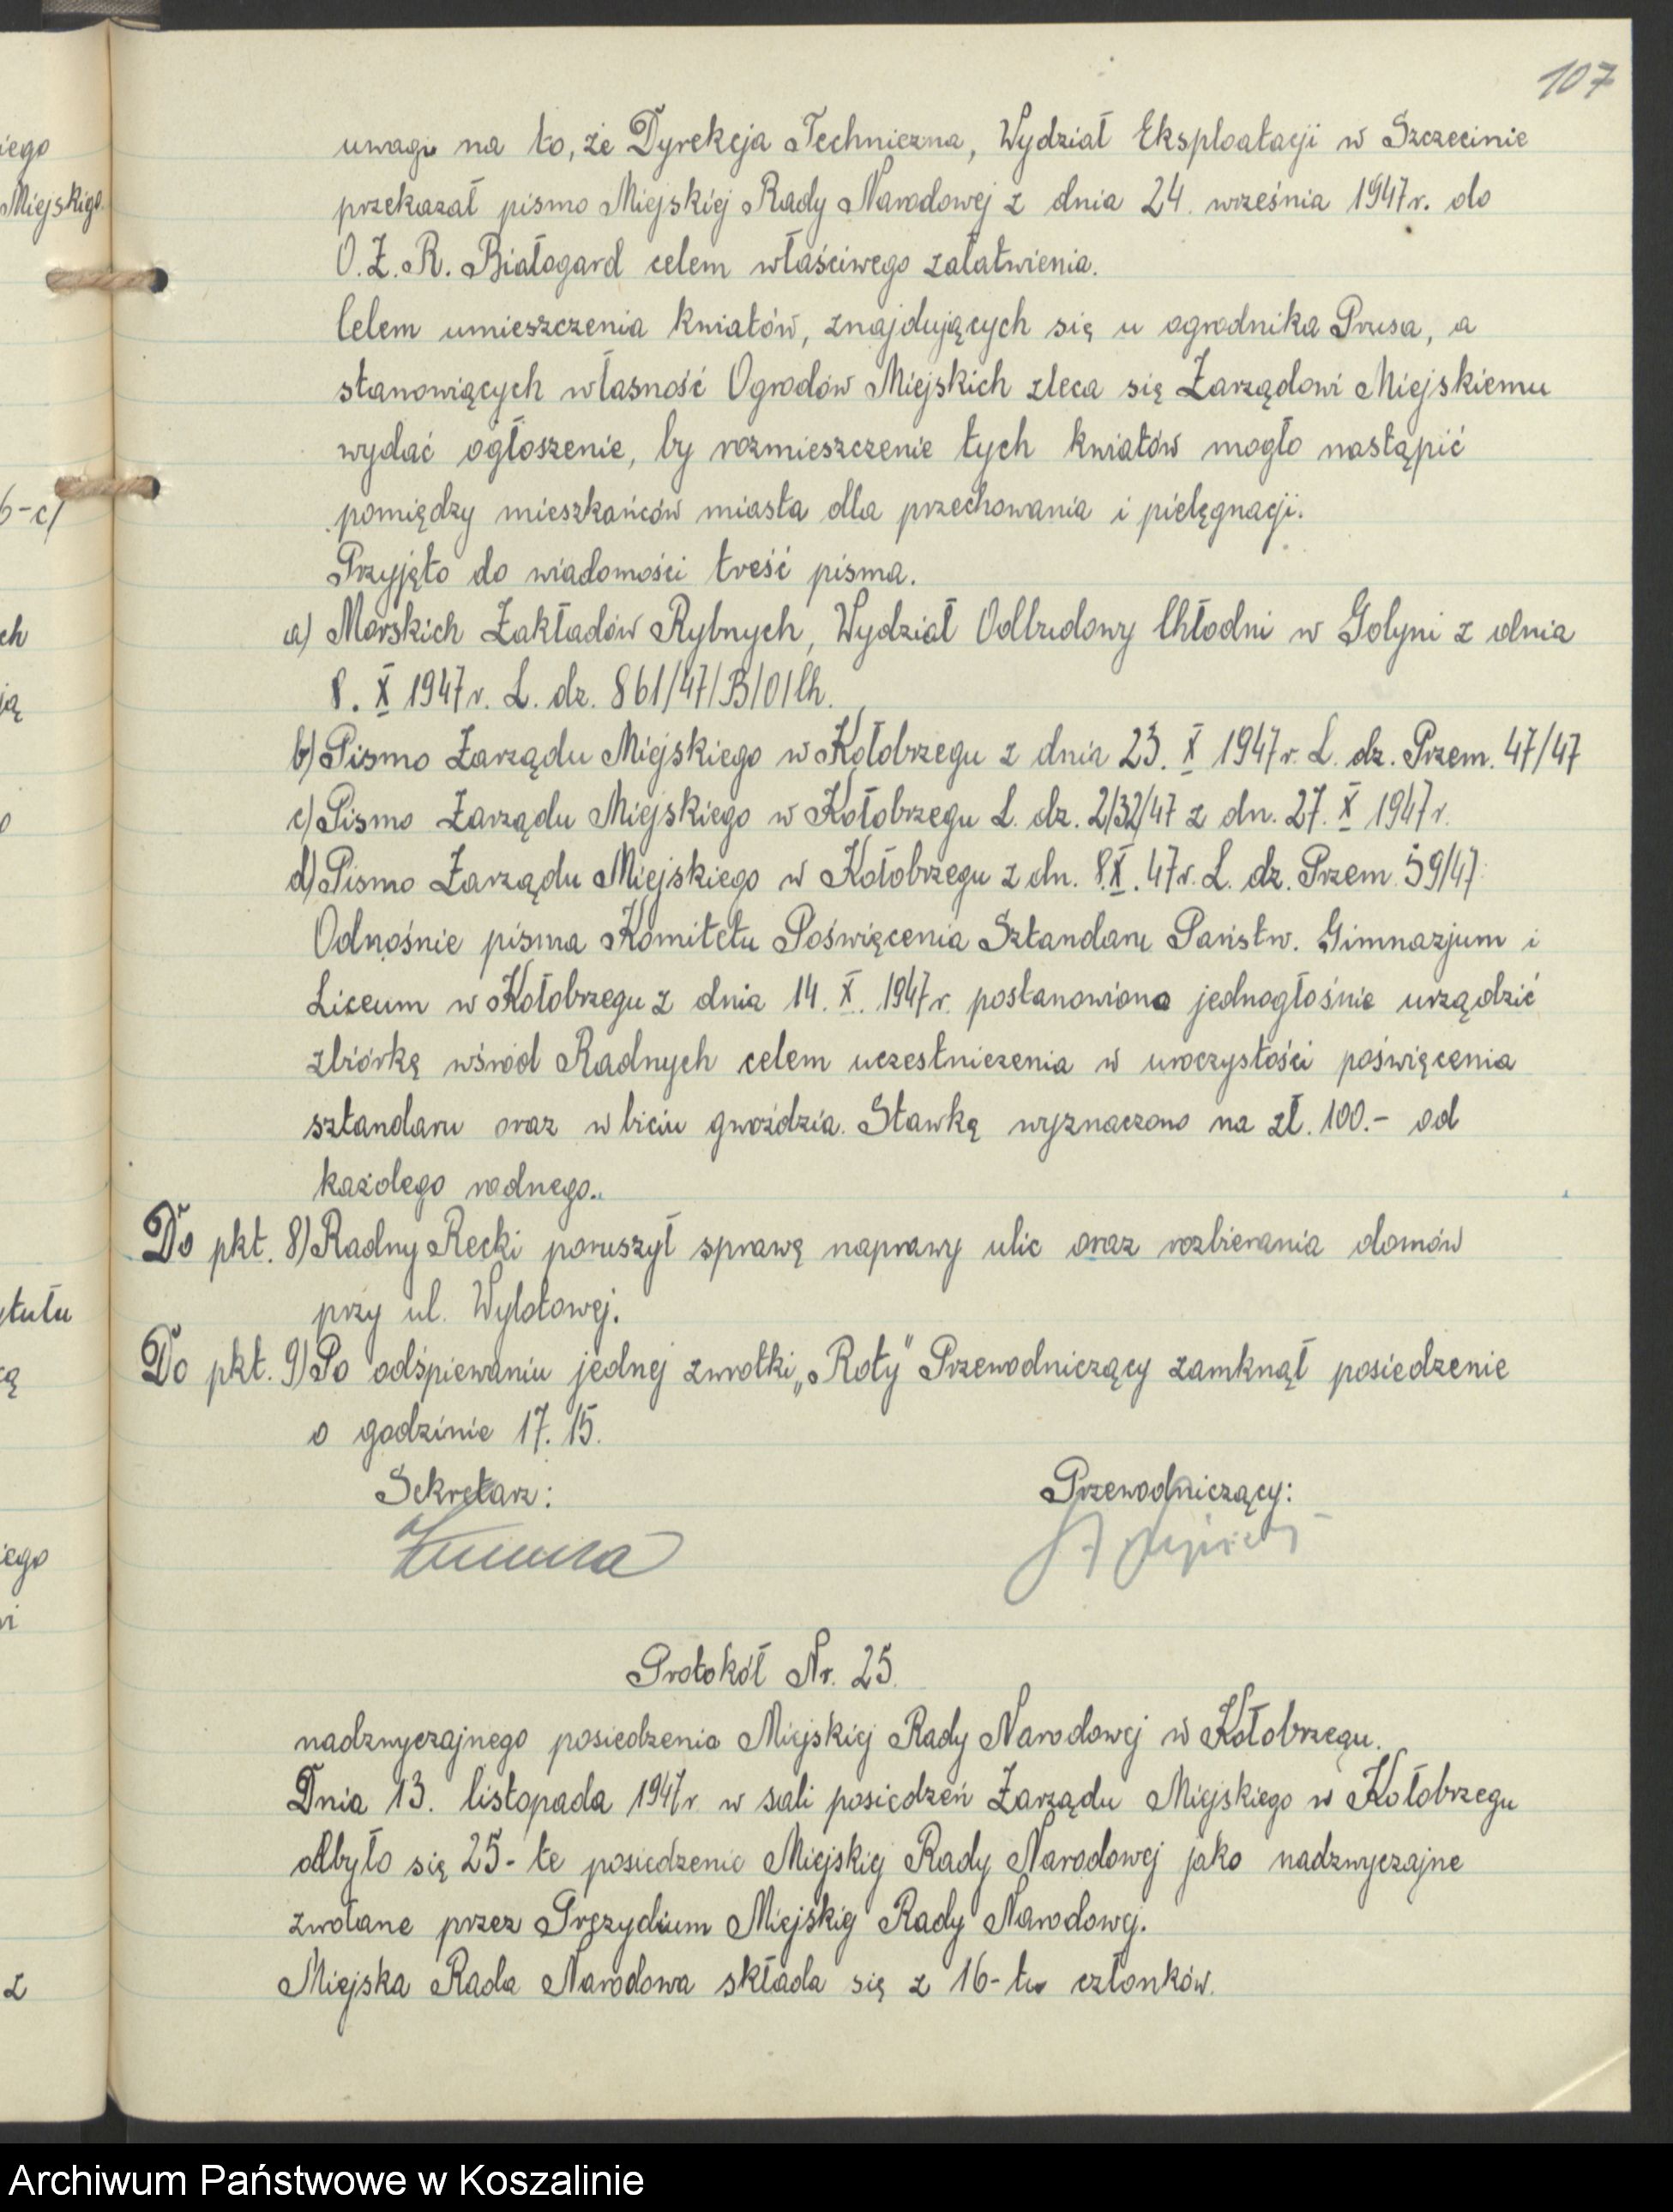 107
uwagi na to, że Dyrekcja Techniczna, Wydział Eksploatacji w Szczecinie
przekazał pismo Miejskiej Rady Narodowej z dnia 24. września 1947 r. do
O.Z.R. Białogard celem właściwego załatwienia.
Celem umieszczenia kwiatów, znajdujących się u ogrodnika Prusa, a
stanowiących własność Ogrodów Miejskich zleca się Zarządowi Miejskiemu
wydać ogłoszenie, by rozmieszczenie tych kwiatów mogło nastąpić
pomiędzy mieszkańców miasta dla przechowania i pielęgnacji.
Przyjęto do wiadomości treść pisma.
a) Morskich Zakładów Rybnych, Wydział Odbudowy Chłodni w Gdyni z dnia
8. X 1947 r. L. dz. 861/47/B/O/Ch.
b) Pismo Zarządu Miejskiego w Kołobrzegu z dnia 23. X 1947 r. L. dz. Przem. 47/47
c) Pismo Zarządu Miejskiego w Kołobrzegu L. dz. 2/32/47 z dn. 27. X 1947 r.
d) Pismo Zarządu Miejskiego w Kołobrzegu z dn. 8.X. 47 r. L. dz. Przem. 59/47
Odnośnie pisma Komitetu Poświęcenia Sztandaru Państw. Gimnazjum i
Liceum w Kołobrzegu z dnia 14. X. 1947 r. postanowiono jednogłośnie urządzić
zbiórkę wśród Radnych celem uczestniczenia w uroczystości poświęcenia
sztandaru oraz wbiciu gwoździa. Stawkę wyznaczono na zł. 100.- od
każdego radnego.
Do pkt. 8) Radny Recki poruszył sprawę naprawy ulic oraz rozbierania domów
przy ul. Wylotowej.
Do pkt. 9) Po odśpiewaniu jednej zwrotki „Roty" Przewodniczący zamknął posiedzenie
o godzinie 17.15.
Sekretarz: Przewodniczący:
Protokół Nr. 25.
nadzwyczajnego posiedzenia Miejskiej Rady Narodowej w Kołobrzegu.
Dnia 13. listopada 1947 r. w sali posiedzeń Zarządu Miejskiego w Kołobrzegu
odbyło się 25-te posiedzenie Miejskiej Rady Narodowej jako nadzwyczajne
zwołane przez Prezydium Miejskiej Rady Narodowej.
Miejska Rada Narodowa składa się z 16-tu członków.
Archiwum Państwowe w Koszalinie